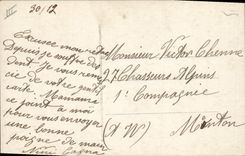 30/12
Excusez mon retard
Depuis je souffre des
dents Je vous remer
cie de votre gentille
carte. Maman
se joint à moi
pour vous envoyer
une bonne
poignée de main
Monsieur Victor Chenne
27 Chasseurs Alpins
1e Compagnie
(A M) Menton